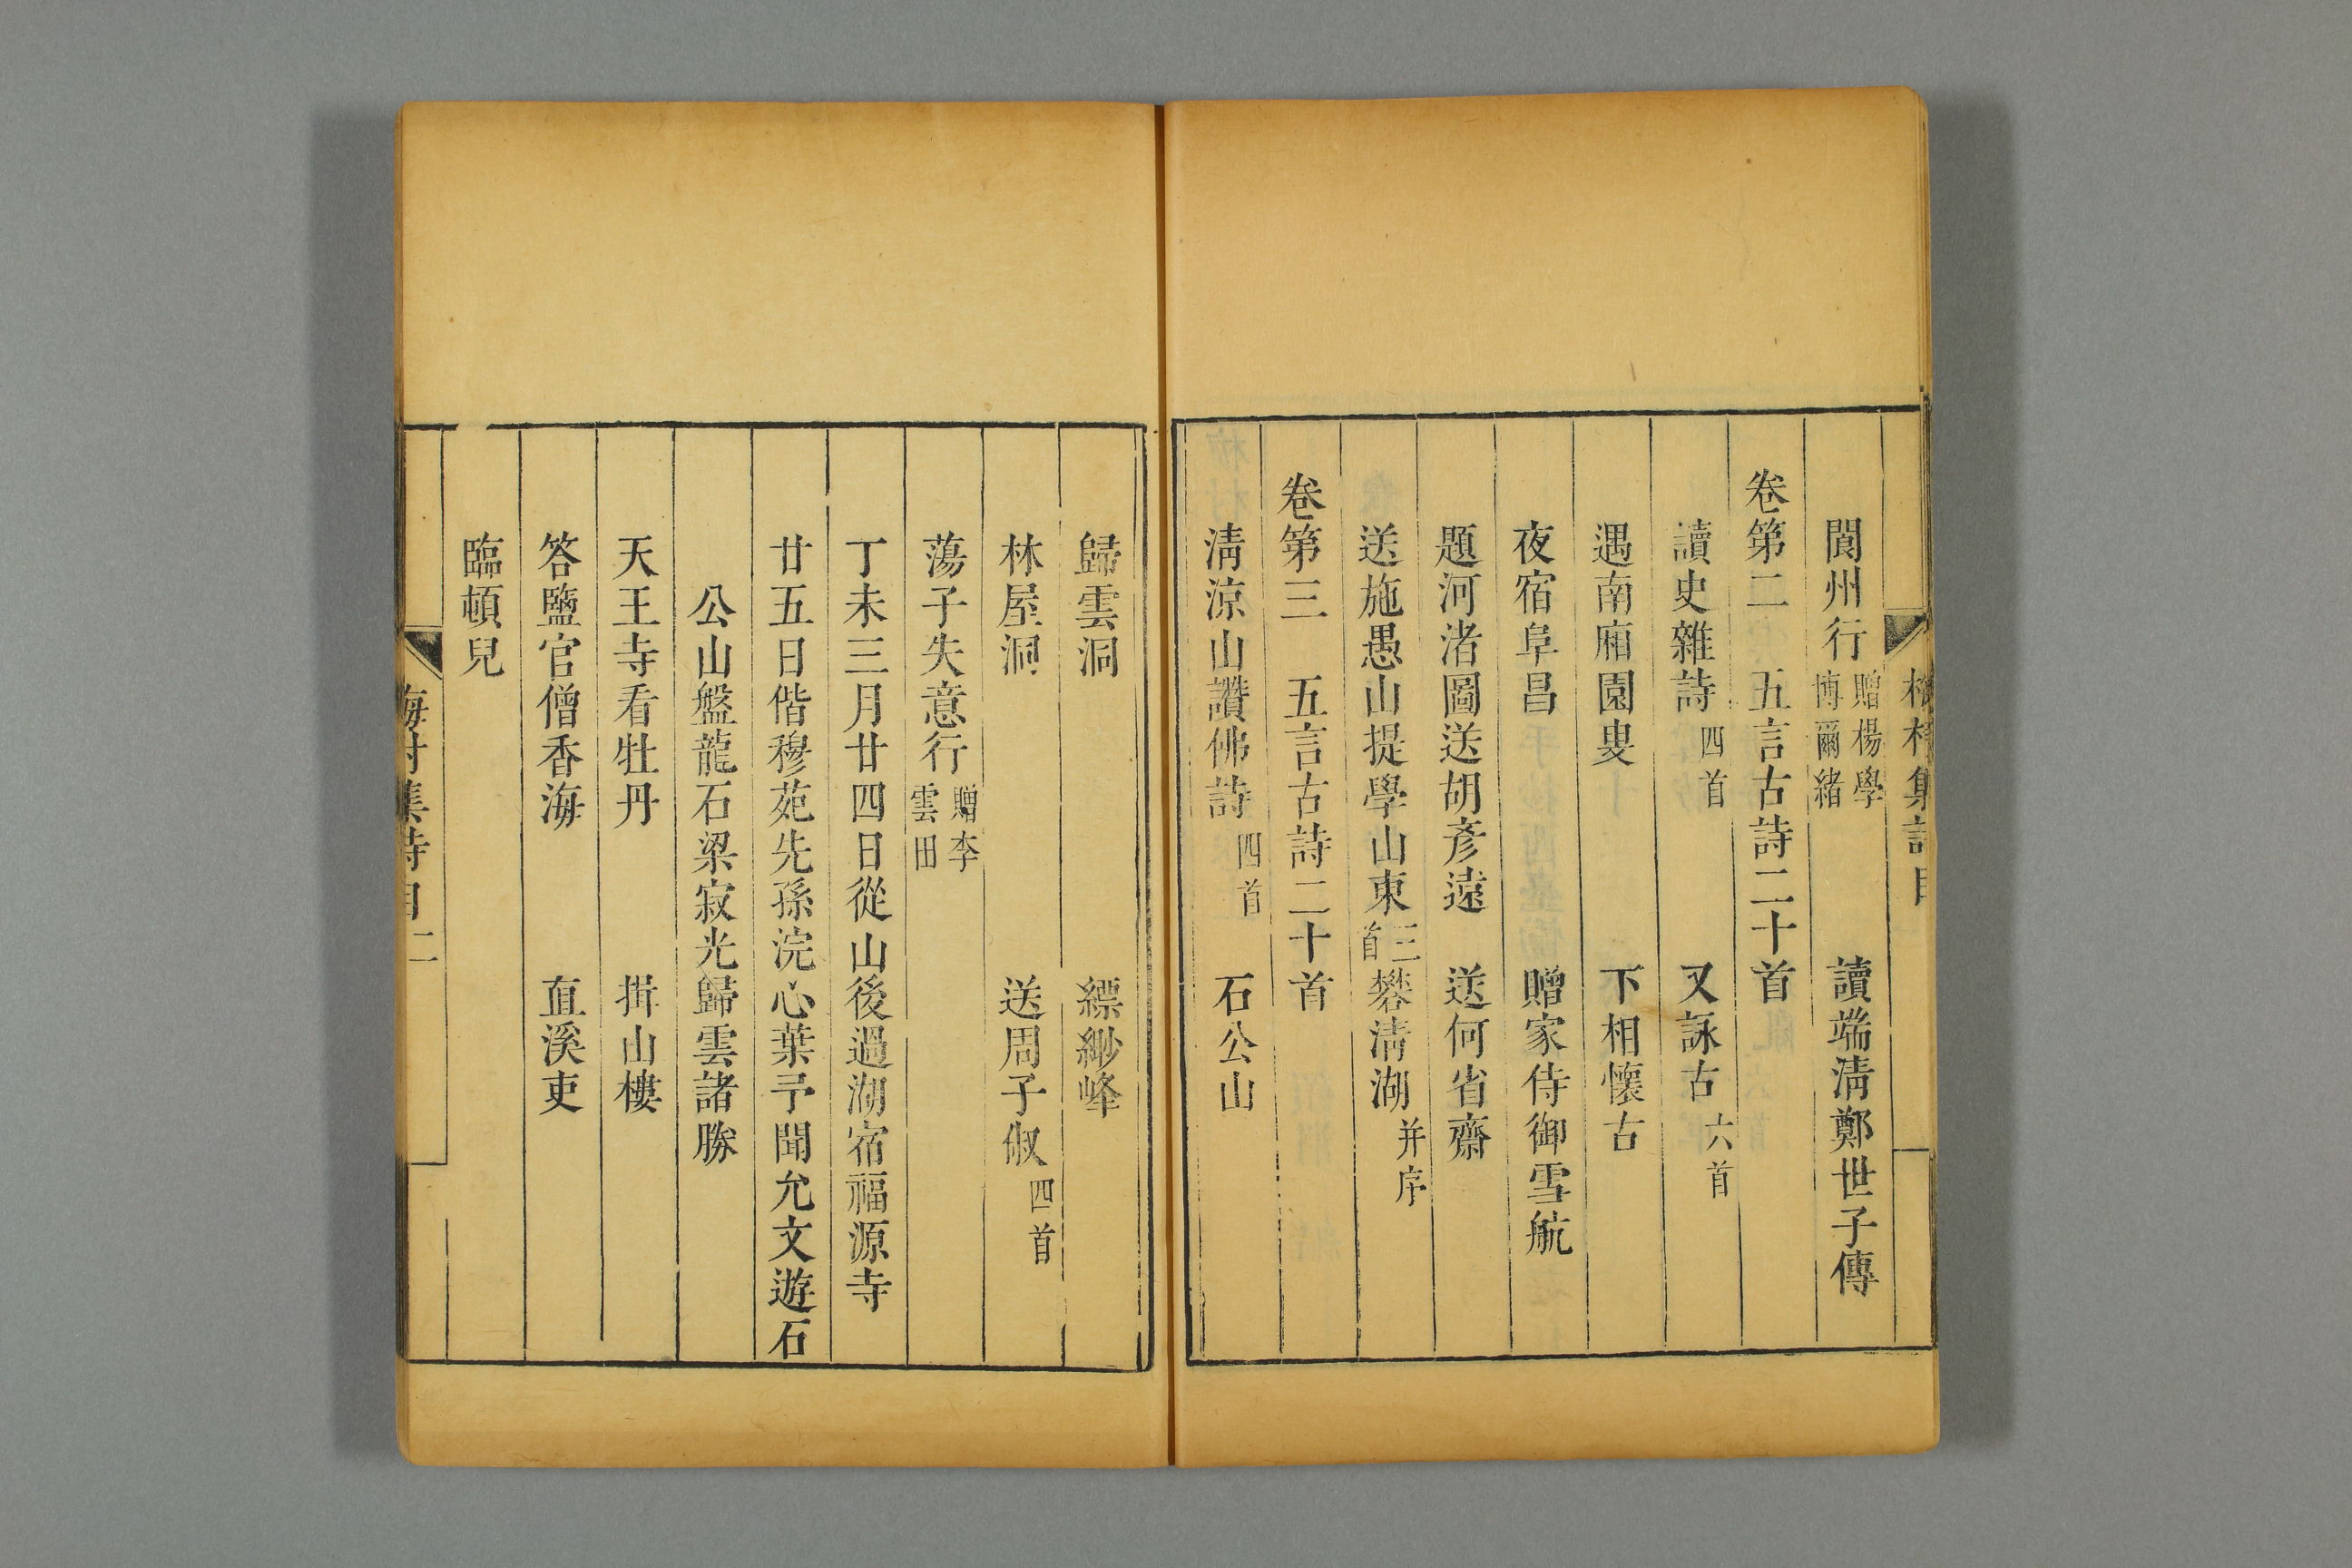 閬州行 贈楊學博爾緒 讀端淸鄭世子傳
卷第二 五言古詩二十首
讀史雜詩 四首 又詠古 六首
遇南廂園叟 下相懷古
夜宿阜昌 贈家侍御雪航
題河渚圖送胡彥遠 送何省齋
送施愚山提學山東 三首 礬淸湖 并序
卷第三 五言古詩二十首
淸涼山讚佛詩 四首 石公山
歸雲洞 縹緲峰
林屋洞 送周子俶 四首
蕩子失意行 贈李雲田
丁未三月廿四日從山後過湖宿福源寺
廿五日偕穆苑先孫浣心葉予聞允文遊石
公山盤龍石梁寂光歸雲諸勝
天王寺看牡丹 揖山樓
答鹽官僧香海 直溪吏
臨頓兒
梅村集詩目 二